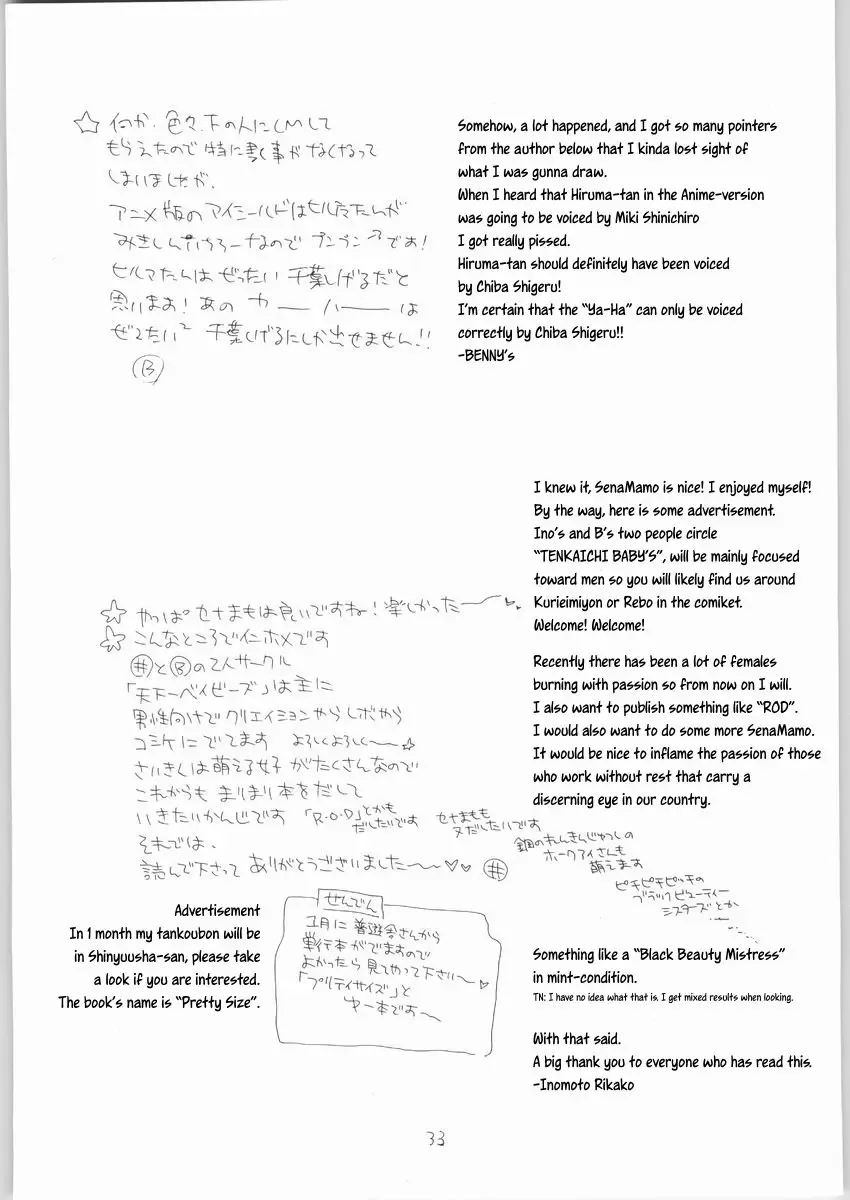 ☆ 何か、色々、下の人にCMして
もらえたので特に書く事がなくなって
しまいましたが、
アニメ版のアイシールドはヒルマたんが
みきしんいちろーなのでプンプンです!
ヒルマたんはぜったい千葉しげるだと
思います!あのヤーハーは
ぜったい²千葉しげるにしか出せません!!
Ⓑ
Somehow, a lot happened, and I got so many pointers
from the author below that I kinda lost sight of
what I was gunna draw.
When I heard that Hiruma-tan in the Anime-version
was going to be voiced by Miki Shinichiro
I got really pissed.
Hiruma-tan should definitely have been voiced
by Chiba Shigeru!
I'm certain that the "Ya-Ha" can only be voiced
correctly by Chiba Shigeru!!
-BENNY's
I knew it, SenaMamo is nice! I enjoyed myself!
By the way, here is some advertisement.
Ino's and B's two people circle
"TENKAICHI BABY'S", will be mainly focused
toward men so you will likely find us around
Kurieimiyon or Rebo in the comiket.
Welcome! Welcome!
Recently there has been a lot of females
burning with passion so from now on I will.
I also want to publish something like "ROD".
I would also want to do some more SenaMamo.
It would be nice to inflame the passion of those
who work without rest that carry a
discerning eye in our country.
☆ やっぱセナまもは良いですね!楽しかった〜
☆ こんなところで
とⒷの2人サークル
「天下一ベイビーズ」は主に
男性向けでクリエイションやらレボやら
コミケにでてます よろしくよろしく〜☆
さいきんは萌える女子がたくさんなので
これからも まりまり本をだして
いきたいかんじです 「R.O.D」とかも
だしたいです セナまもも
又だしたいです
鋼のれんきんじゅつしの
ホークアイさんも
萌えます
ピチピチピッチの
ブラックビューティー
シスターズとか
それでは、
読んで下さって ありがとうございました〜♡♡
せんでん
1月に普遊舎さんから
単行本がでますので
よかったら見てやって下さい〜♡
「プリティサイズ」と
ゆー本です〜
Advertisement
In 1 month my tankoubon will be
in Shinyuusha-san, please take
a look if you are interested.
The book's name is "Pretty Size".
Something like a "Black Beauty Mistress"
in mint-condition.
TN: I have no idea what that is. I get mixed results when looking.
With that said.
A big thank you to everyone who has read this.
-Inomoto Rikako
33